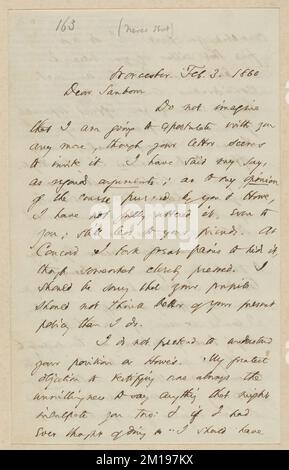 163 (Never Sent)
Worcester Feb. 3. 1860
Dear Sanborn
Do not imagine
that I am going to expostulate with you
any more, though your letter seems
to invite it. I have said my say,
as regards arguments; as to my opinion
of the course pursued by you & Howe,
I have not fully uttered it, even to
you; still less to your friends. At
Concord I took great pains to hide it,
though somewhat closely pressed. I
should be sorry that your pupils
should not think better of your present
policy than I do.
I do not pretend to understand
your position or Howe's. My greatest
objection to testifying was always the
unwillingness to say anything that might
inculpate you two: & if I had
ever thought of doing so I should have
alamy
Image ID: 2M197KX
www.alamy.com